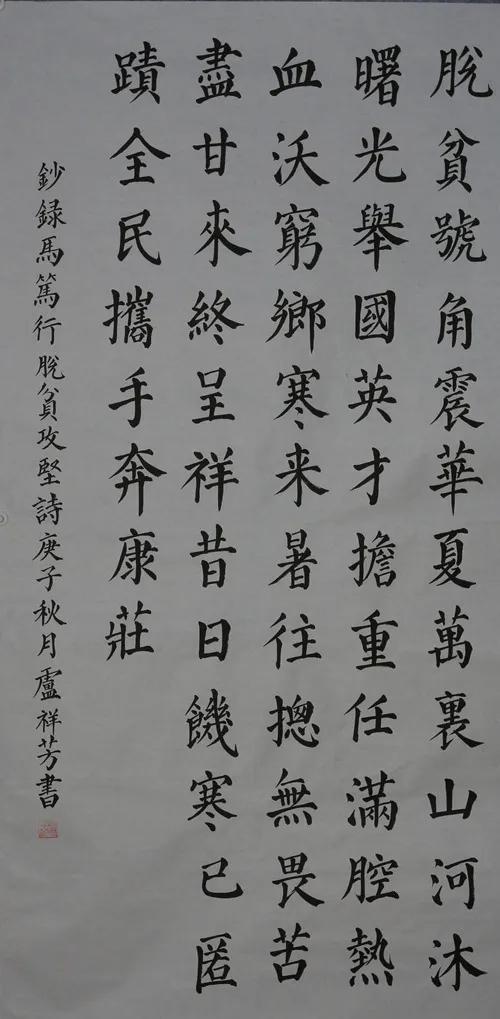 脫貧號角震華夏萬裏山河沐
曙光舉國英才擔重任滿腔熱
血沃窮鄉寒来暑往摠無畏苦
盡甘來終呈祥昔日饑寒已匿
蹟全民攜手奔康莊
鈔録馬篤行脫貧攻堅詩庚子秋月盧祥芳書